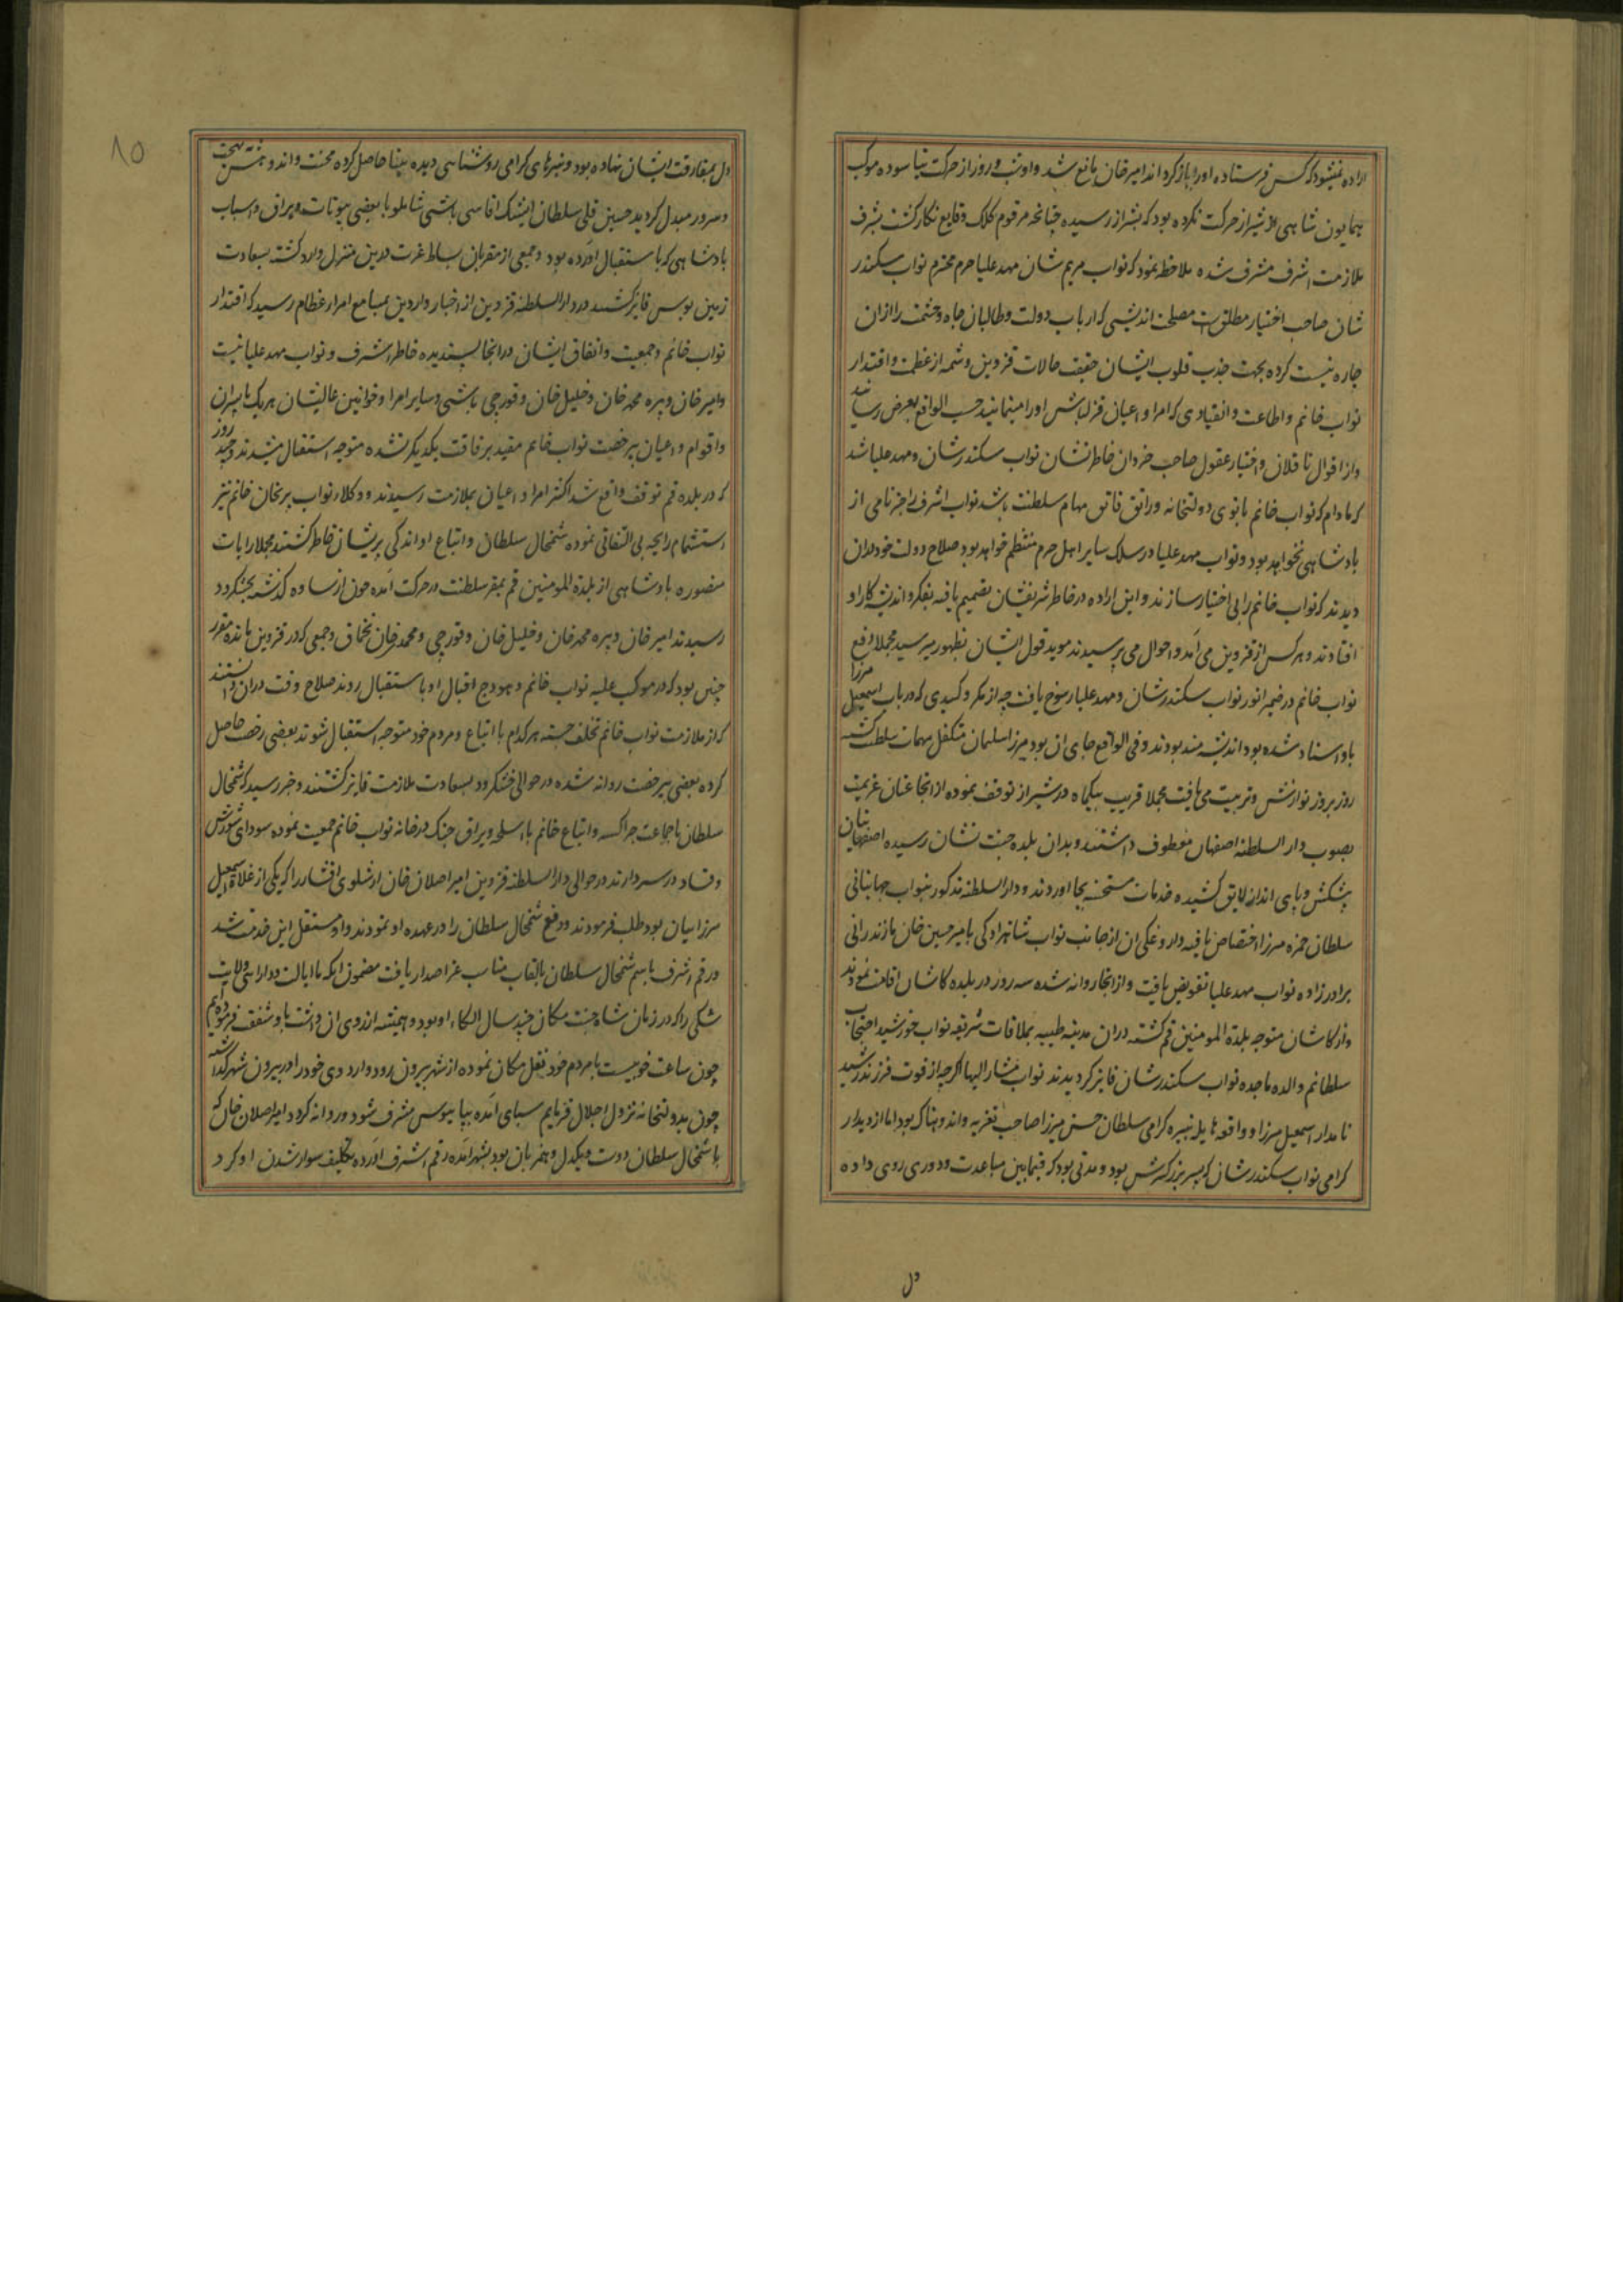 اراده نمیشود که کس فرستاده اورا باز کردانند امیرخان مانع شد و او شب و روز از حرکت نیاسوده موکب
همایون شاهی از شیراز حرکت نکرده بود که بشیراز رسیده چنانچه مرقوم کلک وقایع نکار کشت بشرف
ملازمت اشرف مشرف شده ملاحظه نمود که نواب مریم شان مهد علیا حرم محترم نواب سکندر
شان صاحب اختیار مطلق است مصلحت اندیشی که ارباب دولت و طالبان جاه و حشمت را ازان
چاره نیست کرده بجهت جذب قلوب ایشان حقیقت حالات قزوین و شمه از عظمت و اقتدار
نواب خانم و اطاعت و انقیادی که امرا و اعیان قزلباش اورا مینمایند حسب الواقع بعرض رسانید
و از اقوال ناقلان و اختیار عقول صاحب خردان خاطرنشان نواب سکندرشان و مهد علیا شد
که مادام که نواب خانم بانوی دولتخانه و راتق و فاتق مهام سلطنت باشد نواب اشرف را جز نامی از
پادشاهی نخواهد بود و نواب مهد علیا در سلک سایر اهل حرم منتظم خواهد بود صلاح دولت خود دران
دیدند که نواب خانم را بی اختیار سازند و این اراده در خاطر شریفشان تصمیم یافته بفکر و اندیشه کار او
افتادند و هرکس از قزوین می آمد و احوال می پرسیدند موید قول ایشان بظهور میرسید مجملا دفع
نواب خانم در ضمیر انور نواب سکندرشان و مهد علیا رسوخ یافت چه از مکر و کیدی که در باب اسمعیل میرزا
باو اسناد شده بود اندیشه مند بودند و فی الواقع جای ان بود میرزا سلمان متکفل مهمات سلطنت کشته
روز بروز نوازش و تربیت می یافت مجملا قریب بیکماه در شیراز توقف نموده از انجا عنان عزیمت
بصوب دار السلطنه اصفهان معطوف داشتند و بدان بلده جنت نشان رسیده اصفهانیان
پیشکش و پای انداز لایق کشیده خدمات مستحسنه بجا اوردند و دار السلطنه مذکور بنواب جهانبانی
سلطان حمزه میرزا اختصاص یافته داروغکی ان از جانب نواب شاهزادکی بامیر حسین خان مازندرانی
برادرزاده نواب مهد علیا تفویض یافت و از انجا روانه شده سه روز در بلده کاشان اقامت نمودند
و از کاشان متوجه بلدة المومنین قم کشته دران مدینه طیبه بملاقات شریفه نواب خورشید احتجاب
سلطانم والده ماجده نواب سکندرشان فایز کردیدند نواب مشار الیها اکرچه از فوت فرزند رشید
نامدار اسمعیل میرزا و واقعه هایله نبیره کرامی سلطان حسن میرزا صاحب تعزیه و اندوهناک بود اما از دیدار
کرامی نواب سکندرشان که پسر بزرکترش بود و مدتی بود که فیمابین مباعدت و دوری روی داده
دل
۸۵
دل بمفارقت ایشان نهاده بود و نبیرهای کرامی روشناهی دیده بینا حاصل کرده محنت و اندوهش به بهجت
و سرور مبدل کردید حسین قلی سلطان ایشک اقاسی باشی شاملو با بعضی بیوتات و یراق و اسباب
پادشاهی که باستقبال اورده بود و جمعی از مقربان بساط عزت درین منزل وارد کشته بسعادت
زمین بوس فایز کشتند در دار السلطنه قزوین از اخبار واردین بمسامع امراء عظام رسید که اقتدار
نواب خانم و جمعیت و اتفاق ایشان در انجا پسندیده خاطر اشرف و نواب مهد علیا نیست
و امیرخان و پیره محمد خان و خلیل خان و قورچی باشی و سایر امرا و خوانین عالیشان هریک با پسران
و اقوام و اعیان برخصت نواب خانم مقید برفاقت یکدیکر نشده متوجه استقبال میشدند و چند روز
که در بلده قم توقف واقع شد اکثر امرا و اعیان بملازمت رسیدند و وکلاء نواب پریخان خانم نیز
استشمام رایحه بی التفاتی نموده شمخال سلطان و اتباع او اندکی پریشان خاطر کشتند مجملا رایات
منصوره پادشاهی از بلدة المومنین قم بمقر سلطنت در حرکت آمده چون از ساوه کذشته بخشکرود
رسیدند امیرخان و پیره محمدخان و خلیل خان و قورچی و محمدقلیخان تخماق و جمعی که در قزوین مانده مقرر
چنین بود که در موکب علیه نواب خانم و هودج اقبال او باستقبال روند صلاح وقت دران دانستند
که از ملازمت نواب خانم تخلف جسته هرکدام با اتباع و مردم خود متوجه استقبال شوند بعضی رخصت حاصل
کرده بعضی بیرخصت روانه شده در حوالی خشکرود بسعادت ملازمت فایز کشتند و خبر رسید که شمخال
سلطان با جماعت چراکسه و اتباع خانم با اسلحه و یراق جنک در خانه نواب خانم جمعیت نموده سودای شورش
و فساد در سر دارند در حوالی دار السلطنه قزوین امیر اصلان خان ارشلوی افشار را که یکی از غلاة اسمعیل
میرزاییان بود طلب فرمودند و دفع شمخال سلطان را در عهده او نمودند و او مستقبل این خدمت شد
و رقم اشرف باسم شمخال سلطان بالقاب مناسب عز اصدار یافت مضمون انکه ما ایالت و دارایی ولایت
شکی را که در زمان شاه جنت مکان چند سال الکاء او بود و همیشه ارزوی ان داشت باو شفقت فرموده ایم
چون ساعت خوبیست با مردم خود نقل مکان نموده از شهر بیرون رود و اردوی خود را در بیرون شهر کذاشته
چون بدولتخانه نزول اجلال فرماییم سبای آمده بپایبوس مشرف شود و روانه کردد امیر اصلان خان که
با شمخال سلطان دوست و یکدل و همزبان بود بشهر آمده رقم اشرف اورده تکلیف سوار شدن او کرد